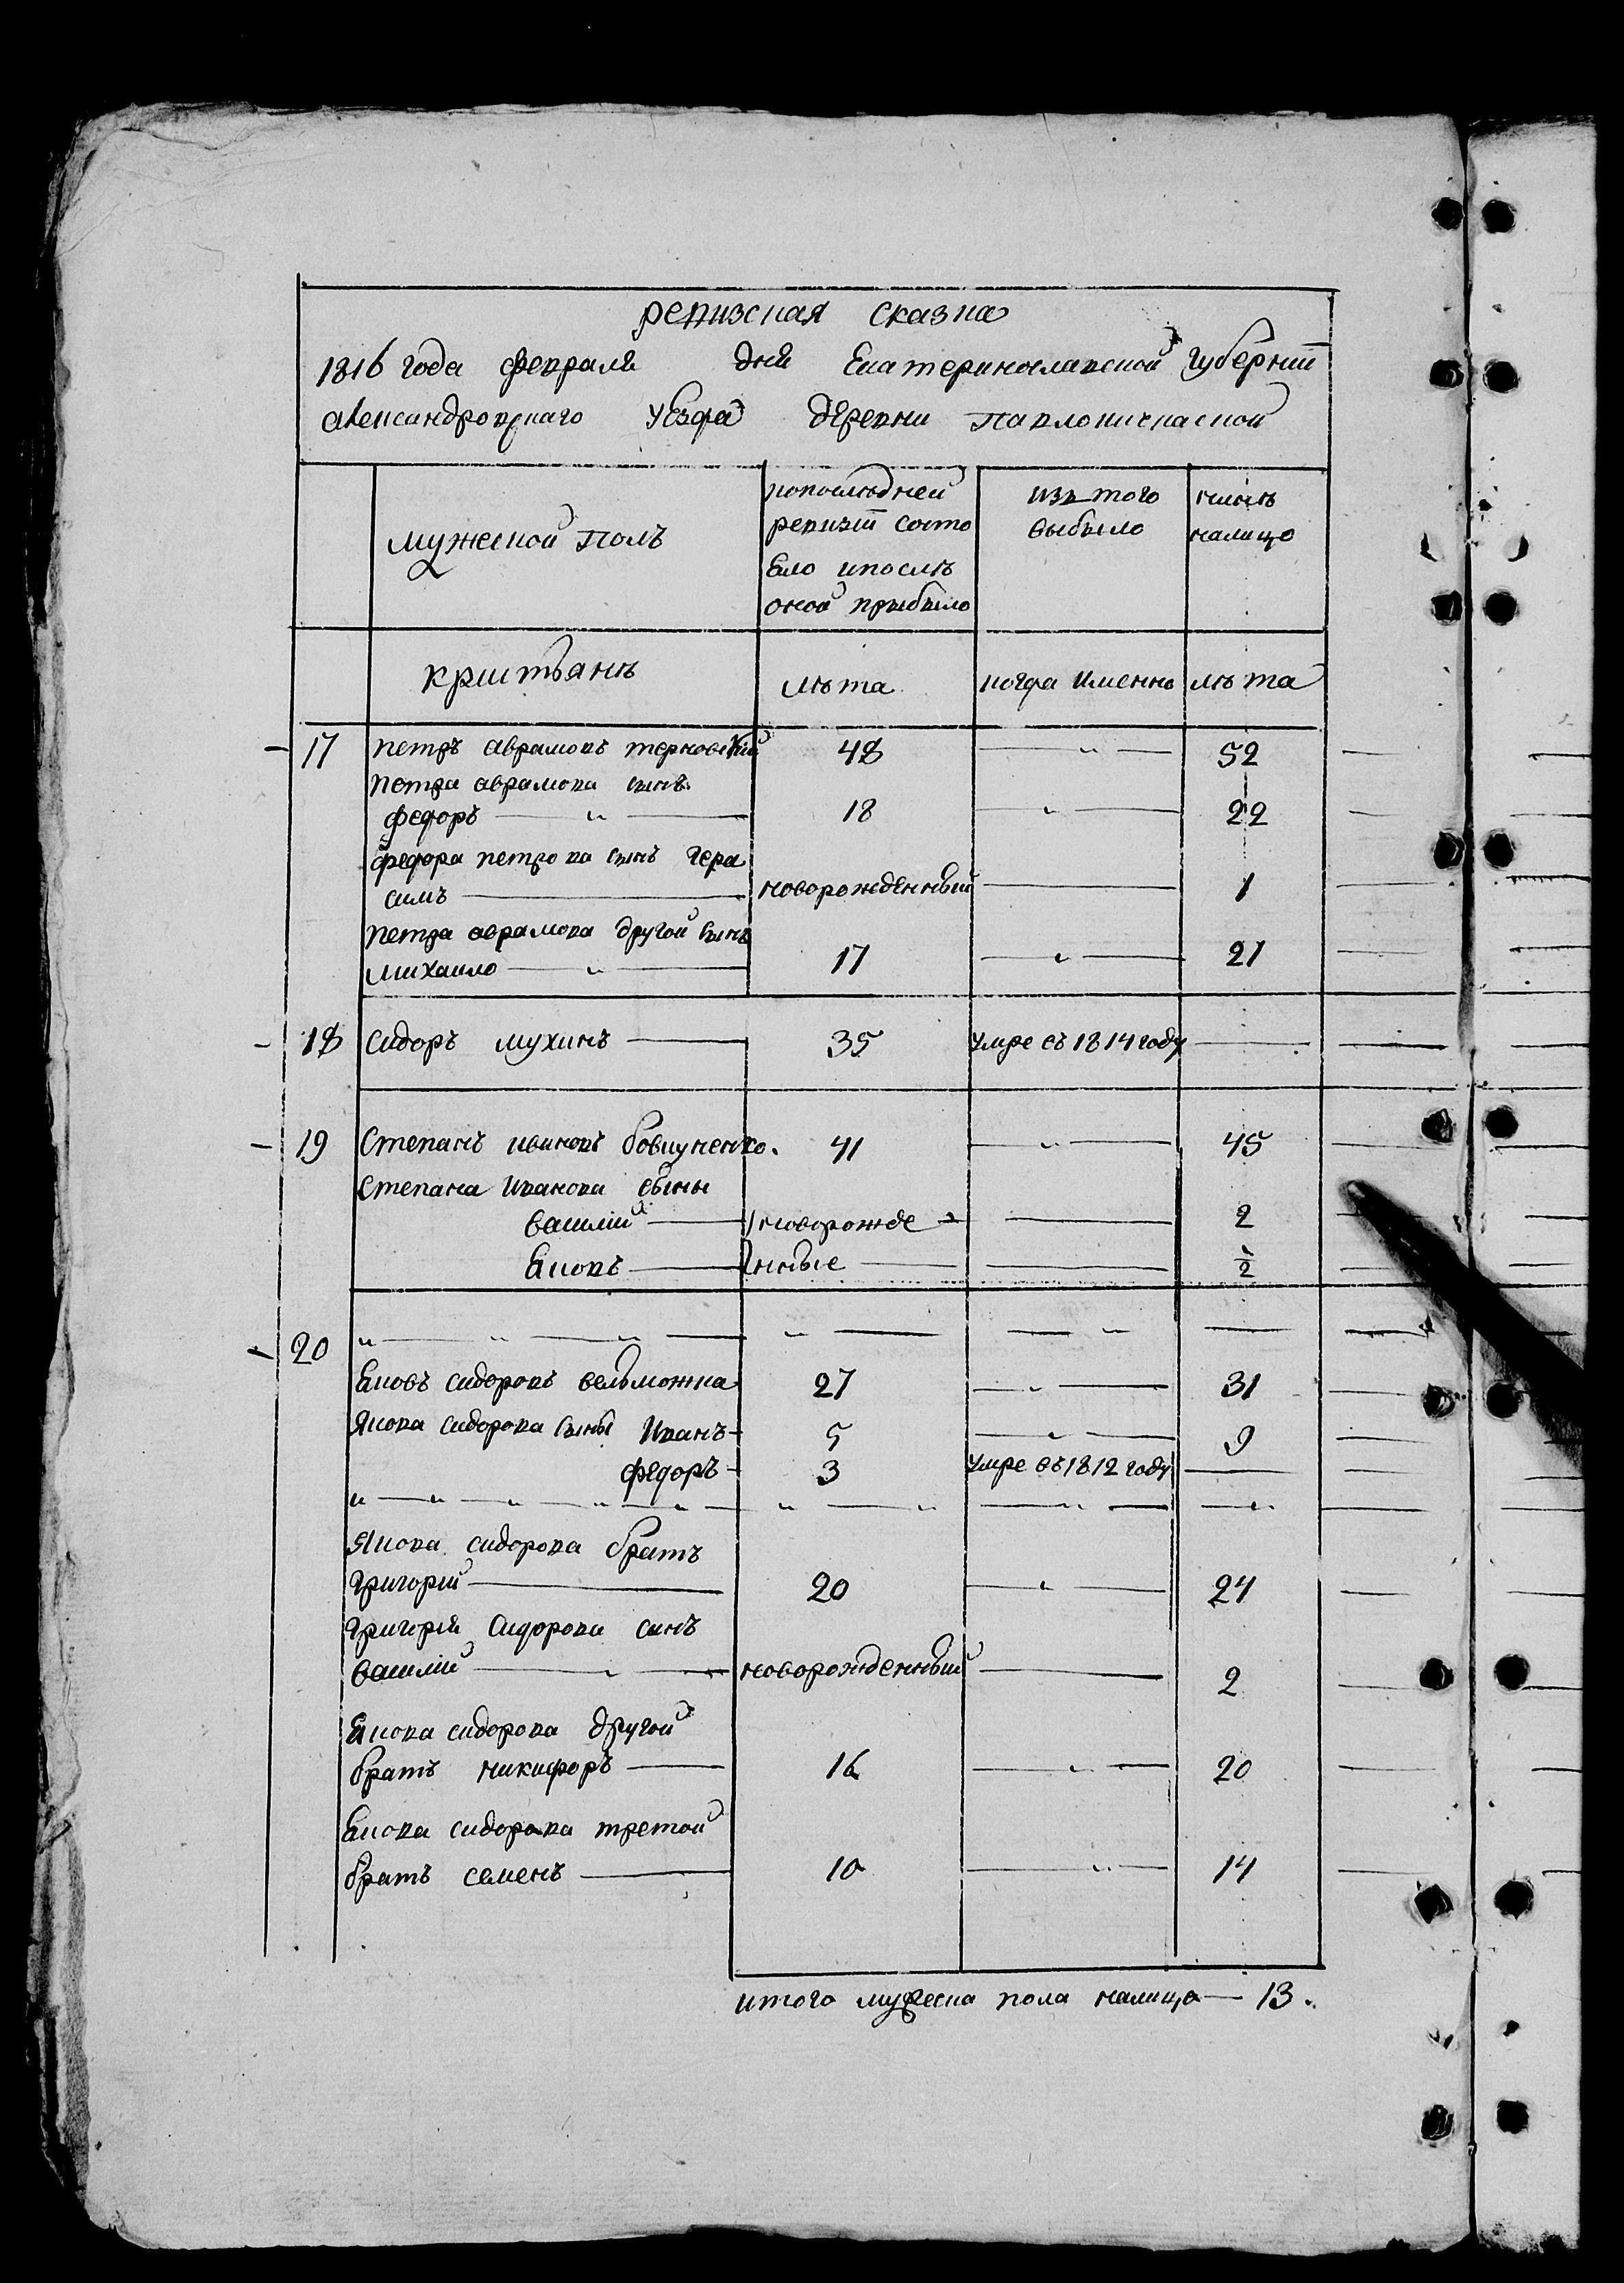 ревизская сказка
1816 года февраля дня Екатеринославской губернiи
александровскаго уѣзда деревни
мужеской полъ
попослѣдней ревизiи состо яло ипослѣ оной прибыло
изъ того выбыло
нынѣ налицо
христьянъ
лѣта
когда именно
лѣта
17 петръ аврамовъ терновскiй 48 — " — 52
петра аврамова сынъ
федоръ — " — 18 — " — 22
федора петрова сынъ гера
симъ — новорожденный — 1
петра аврамова другой сынъ
михаило — " — 17 — " — 21
18 сидоръ мухинъ — 35 умре въ 1814 году —
19 степанъ ивановъ бовкуненко. 41 — " — 45
степана иванова сыны
василiй — новорожде — 2
яковъ — нные — 1/2
20 " — " — " — " — — " —
яковъ сидоровъ вельможка 27 — " — 31
якова сидорова сыны иванъ - 5 — " — 9
федоръ - 3 умре въ 1812 году —
" — " — " — " — " — " — " — " — " —
якова сидорова братъ
григорiй — 20 — " — 24
григорiя сидорова сынъ
василiй — " — новорожденный — 2
якова сидорова другой
братъ никифоръ — 16 — " — 20
якова сидорова третой
братъ семенъ — 10 — " — 14
итого мужеска пола налицо — 13.